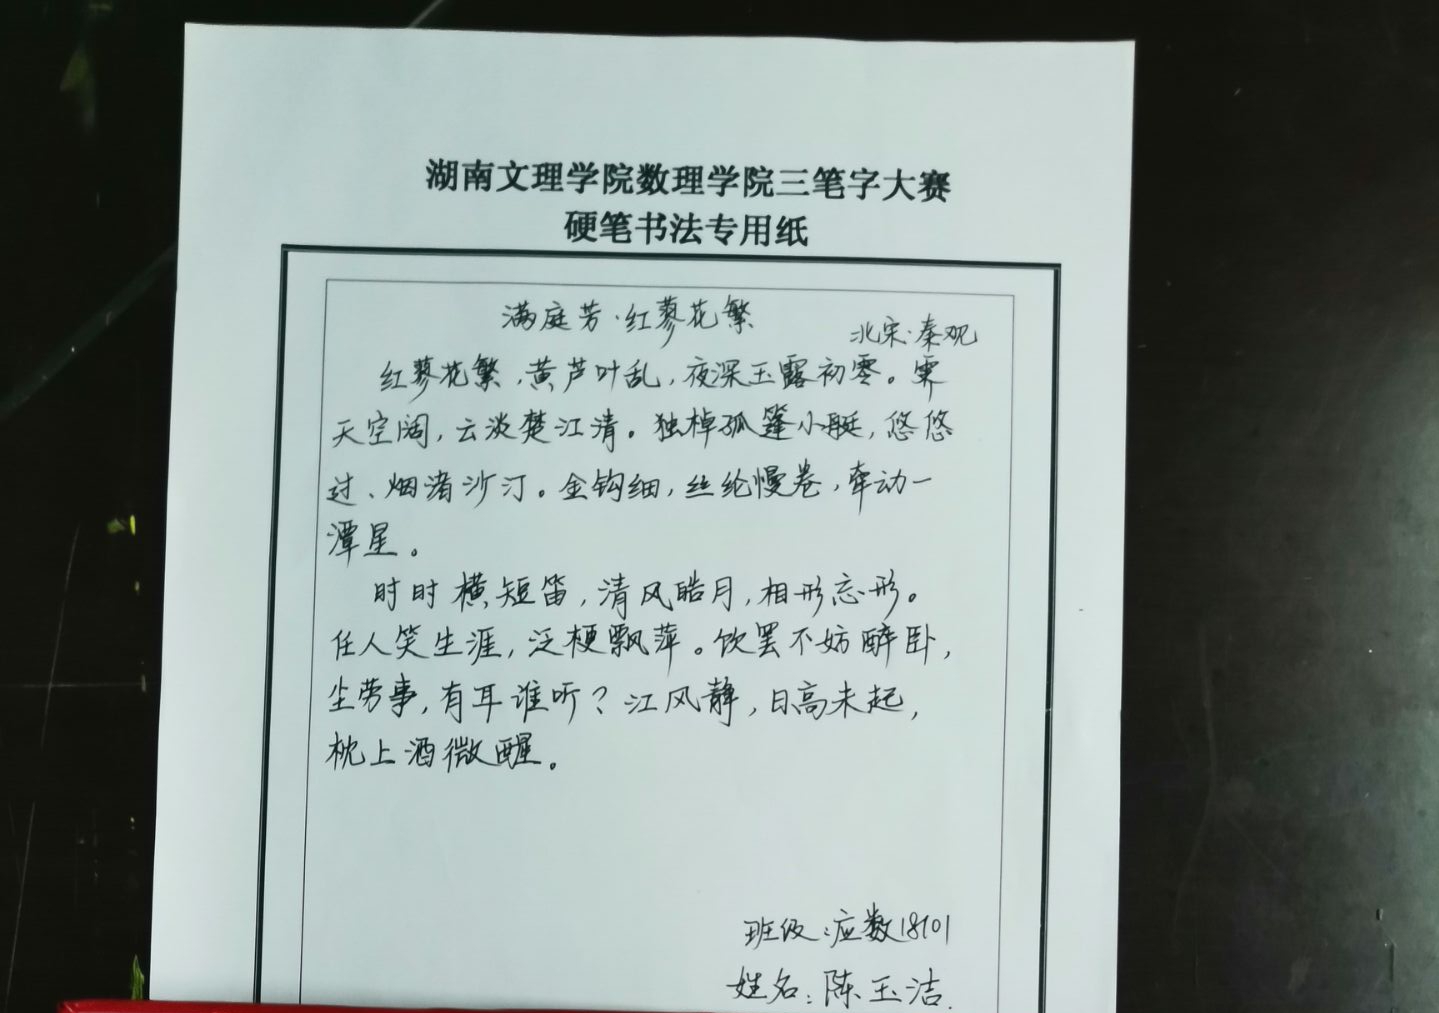 湖南文理学院数理学院三笔字大赛
硬笔书法专用纸
满庭芳·红蓼花繁
北宋·秦观
红蓼花繁，黄芦叶乱，夜深玉露初零。霁
天空阔，云淡楚江清。独棹孤篷小艇，悠悠
过、烟渚沙汀。金钩细，丝纶慢卷，牵动一
潭星。
时时横短笛，清风皓月，相形忘形。
任人笑生涯，泛梗飘萍。饮罢不妨醉卧，
尘劳事，有耳谁听？江风静，日高未起，
枕上酒微醒。
班级：应数18101
姓名：陈玉洁.